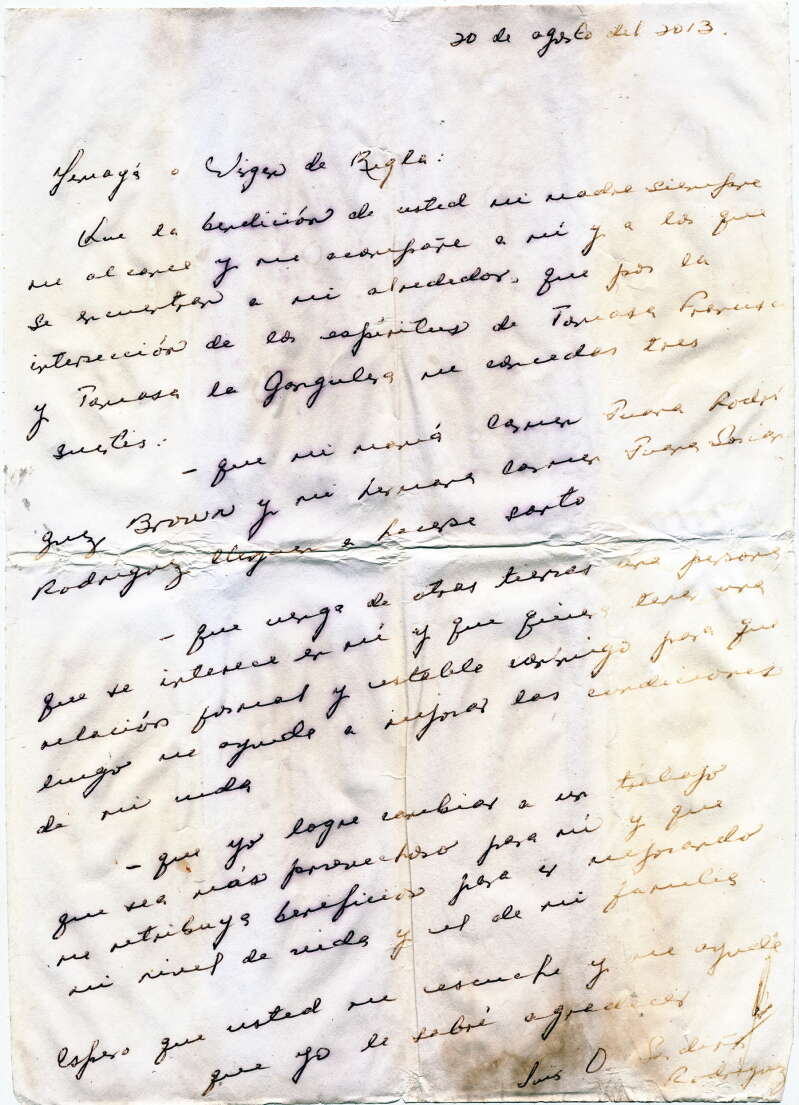 20 de agosto del 2013.
Yemayá o Virgen de Regla:
Que la bendición de usted mi madre siempre
me alcance y me acompañe a mí y a los que
se encuentran a mi alrededor, que por la
intersección de los espíritus de Tomasa Francisca
y Tomasa la me concedas tres
suertes:
- que mi mamá Carmen Juana Rodrí
guez Brown y mi hermana Carmen Juana
Rodríguez lleguen a hacerse santo
- que venga de otras tierras una persona
que se interece en mí y que quiera tener una
relación formal y estable conmigo para que
luego me ayude a mejorar las condiciones
de mi vida
- que yo logre cambiar a un trabajo
que sea más provechoso para mí y que
me retribuya beneficios para ir mejorando
mi nivel de vida y el de mi familia
Espero que usted me escuche y me ayude
que yo le sabré agradecer
Luis O.
Rodríguez